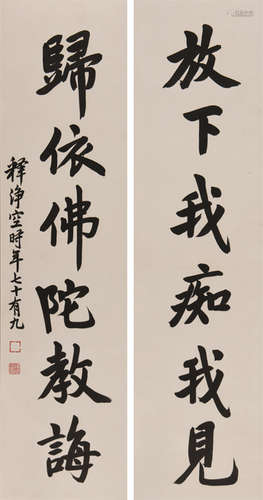 放下我痴我見
歸依佛陀教誨
釋淨空時年七十有九